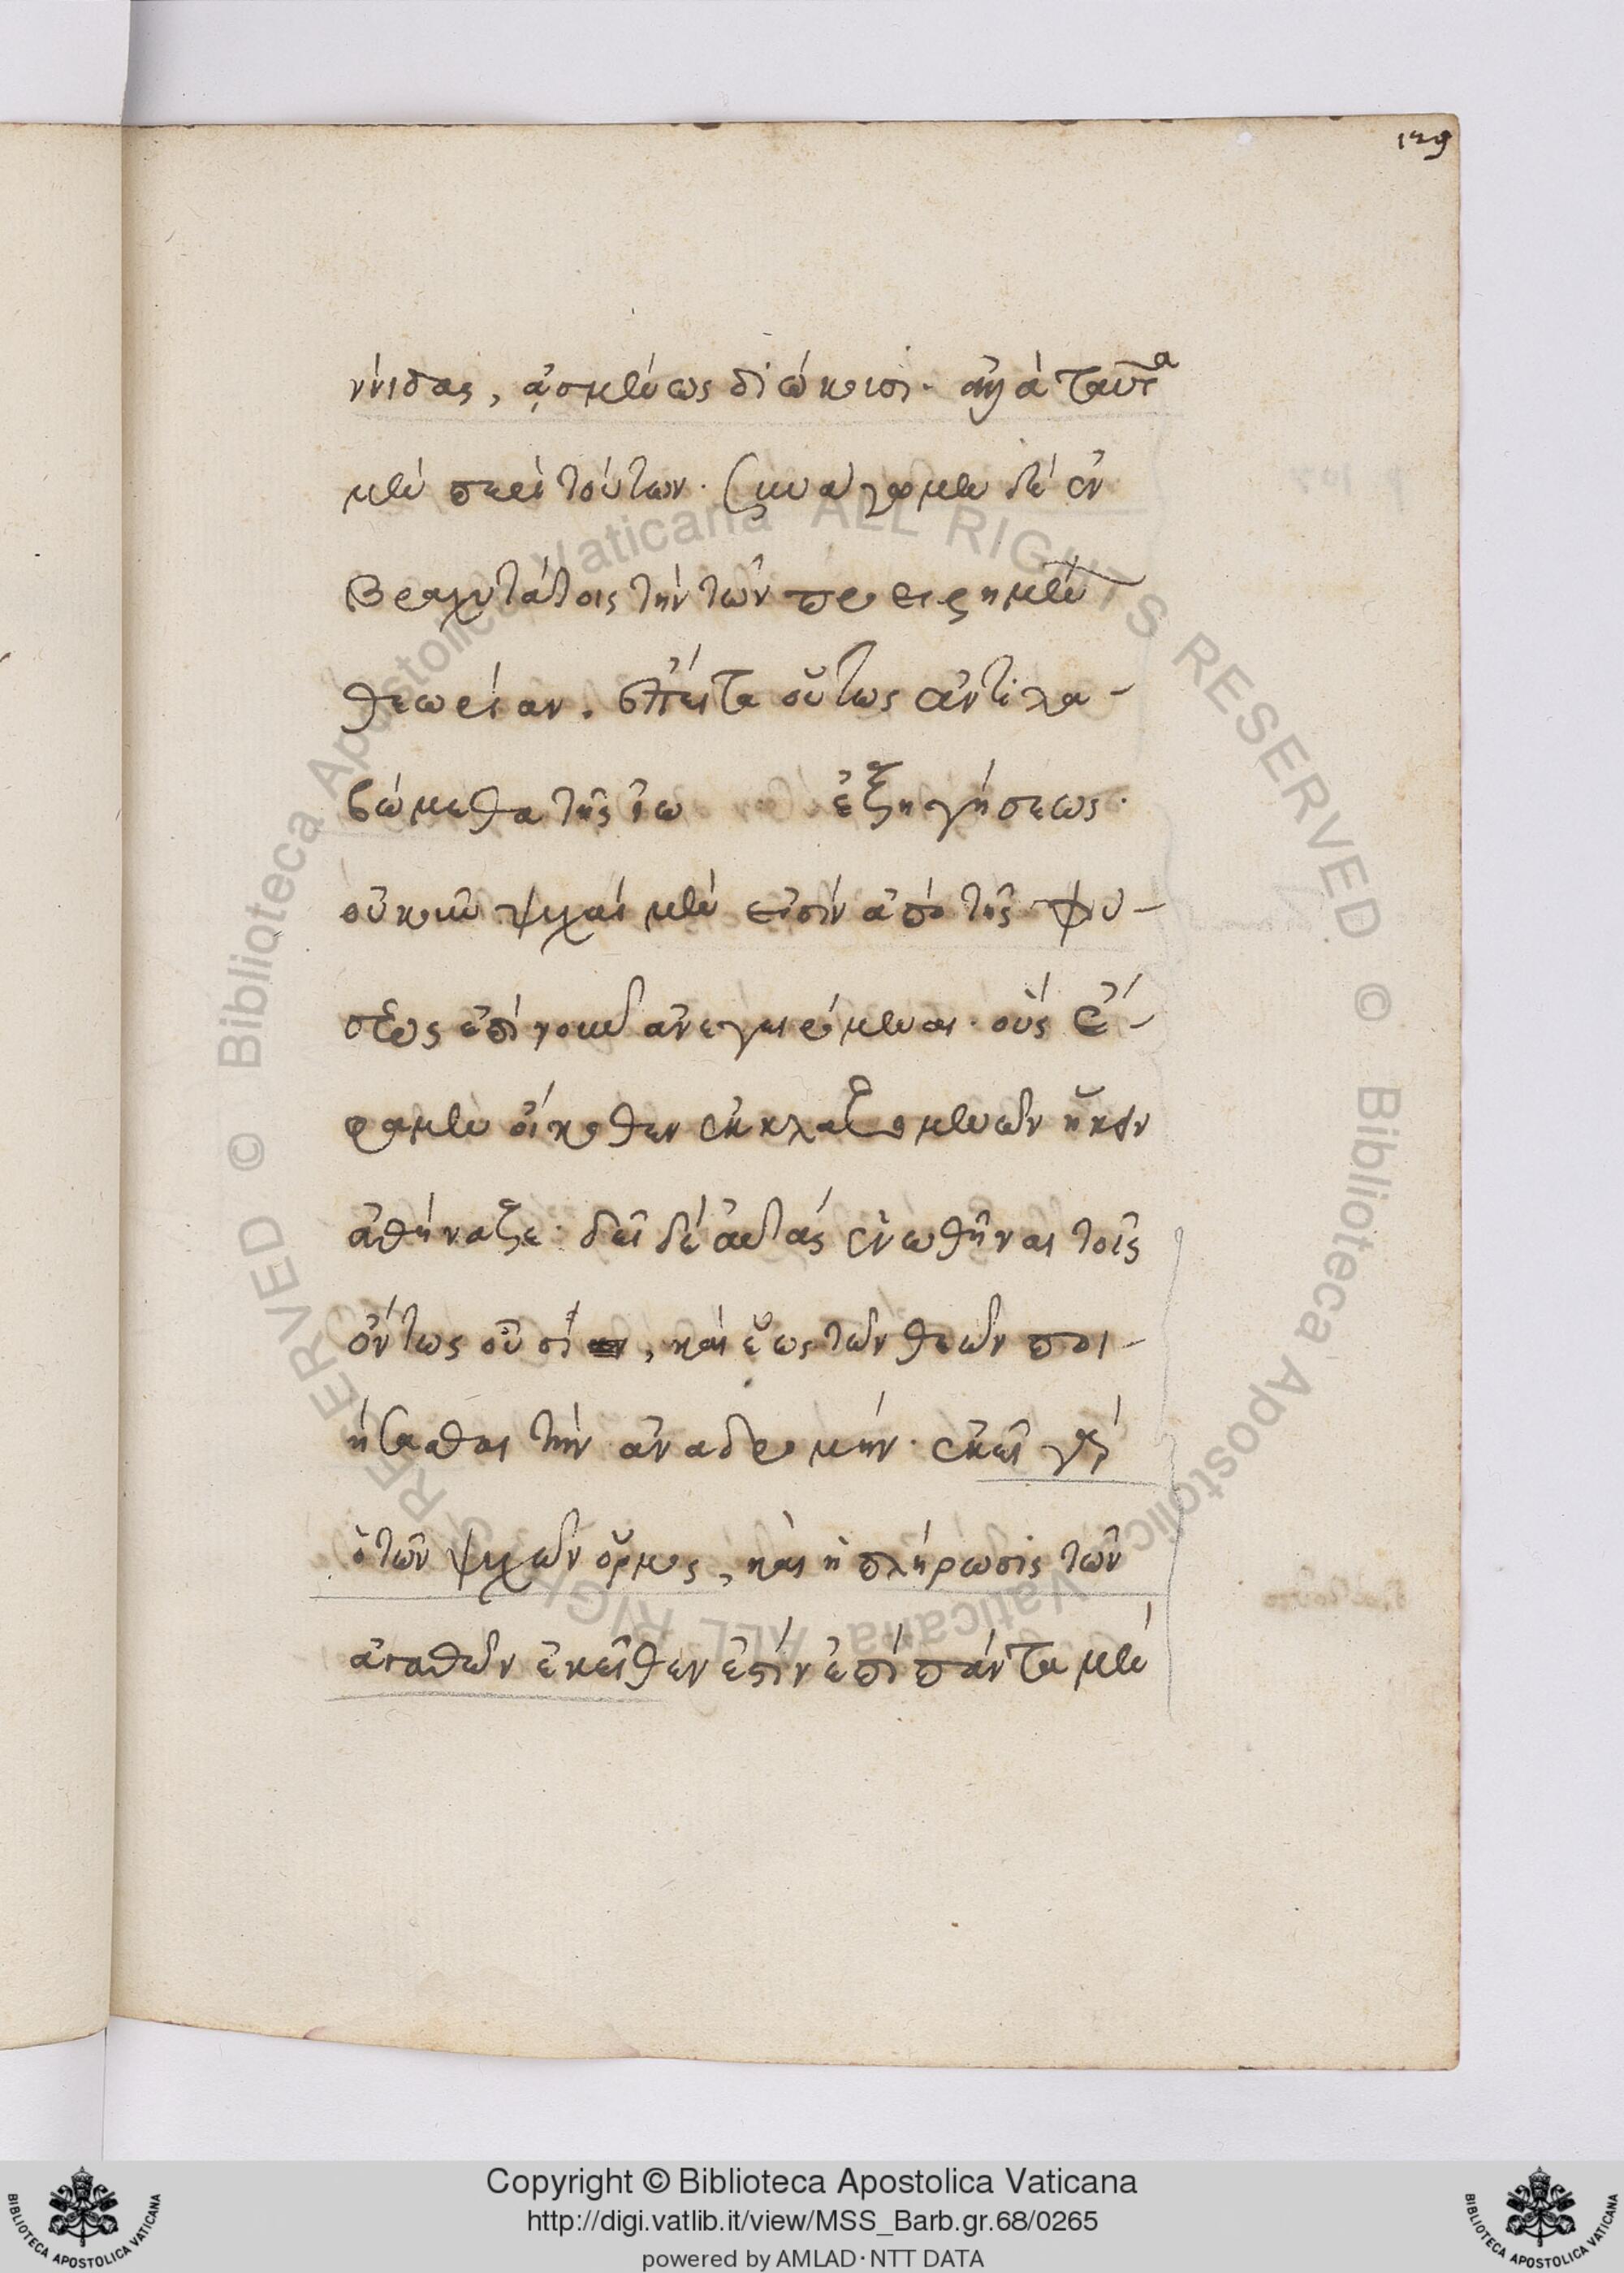 129
ννίδας, ἀσμένως διώκουσι. ἀλλὰ ταῦτα
μὲν περὶ τούτων. συναγάγωμεν δὲ ἐν
βραχυτάτοις τὴν τῶν προειρημένων
θεωρίαν. ἔπειτα οὕτως ἀντιλα-
βώμεθα τῆς ἐξηγήσεως.
οὐκοῦν ψυχαὶ μέν εἰσιν ἀπὸ τῆς φύ-
σεως ἐπὶ νοῦν ἀνεγειρόμεναι. οὓς ἔ-
φαμεν οἴκοθεν ἐκ κλαζομενῶν ἥκειν
ἀθήναζε. δεῖ δὲ αὐτὰς ἑνωθῆναι τοῖς
ὄντως οὖσι, καὶ ἕως τῶν θεῶν ποι-
ήσασθαι τὴν ἀναδρομήν. ἐκεῖ γὰρ
ὁ τῶν ψυχῶν ὅρμος, καὶ ἡ πλήρωσις τῶν
ἀγαθῶν ἐκεῖθέν ἐστιν ἐπὶ πάντα μὲν
Copyright © Biblioteca Apostolica Vaticana
http://digi.vatlib.it/view/MSS_Barb.gr.68/0265
powered by AMLAD · NTT DATA
BIBLIOTECA APOSTOLICA VATICANA
BIBLIOTECA APOSTOLICA VATICANA
© Biblioteca Apostolica Vaticana ALL RIGHTS RESERVED © Biblioteca Apostolica Vaticana ALL RIGHTS RESERVED